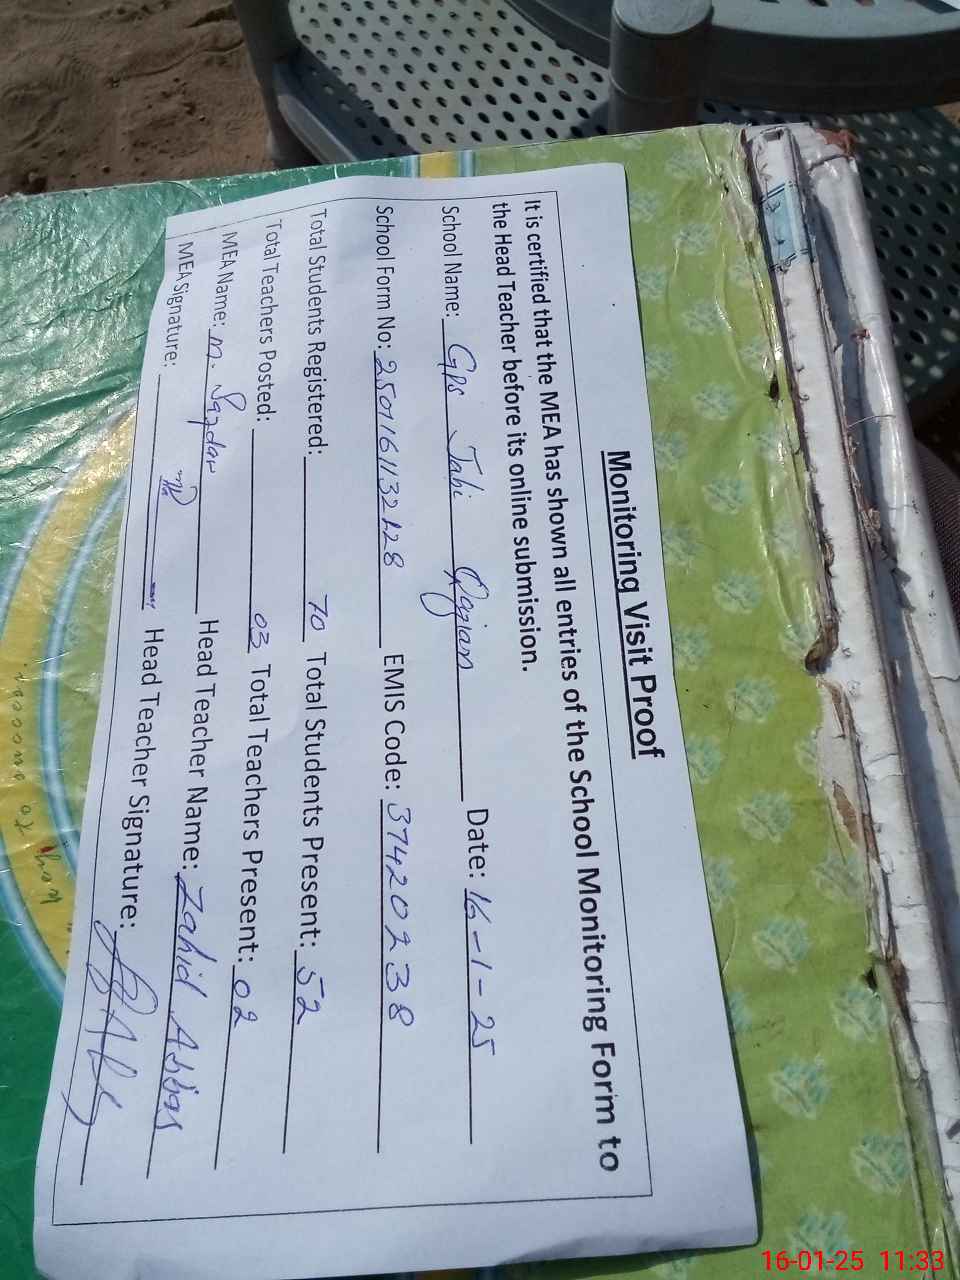 Monitoring Visit Proof
It is certified that the MEA has shown all entries of the School Monitoring Form to
the Head Teacher before its online submission.
School Name: GPS Jabi Qazian Date: 16-1-25
School Form No: EMIS Code: 37420238
Total Students Registered: 70 Total Students Present: 52
Total Teachers Posted: 03 Total Teachers Present: 02
MEA Name: M. Head Teacher Name: Zahid Abbas
MEA Signature: Head Teacher Signature:
16-01-25 11:33